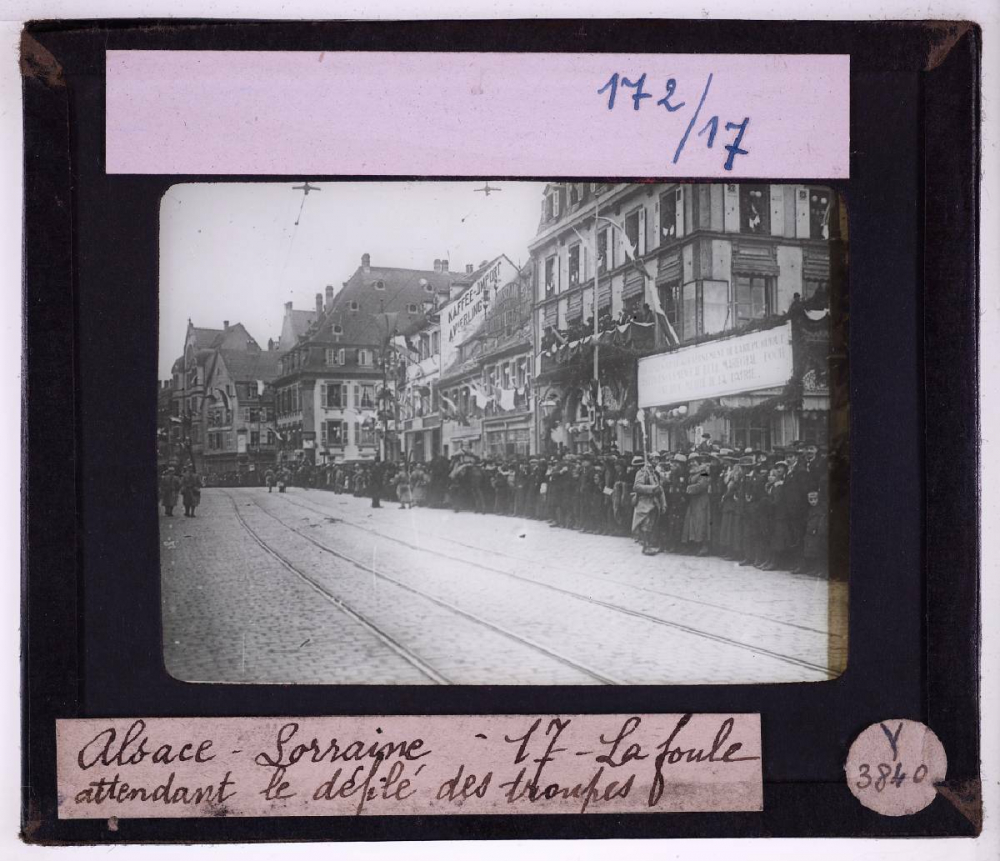 172/17
KAFFEE-IMPORT
DE LA
Alsace - Lorraine - 17 - La foule
attendant le défilé des troupes
Y
3840